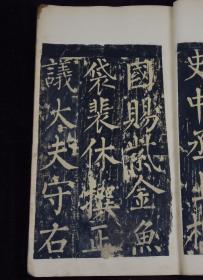 史中丞上柱
國賜紫金魚
袋裴休撰正
議大夫守右